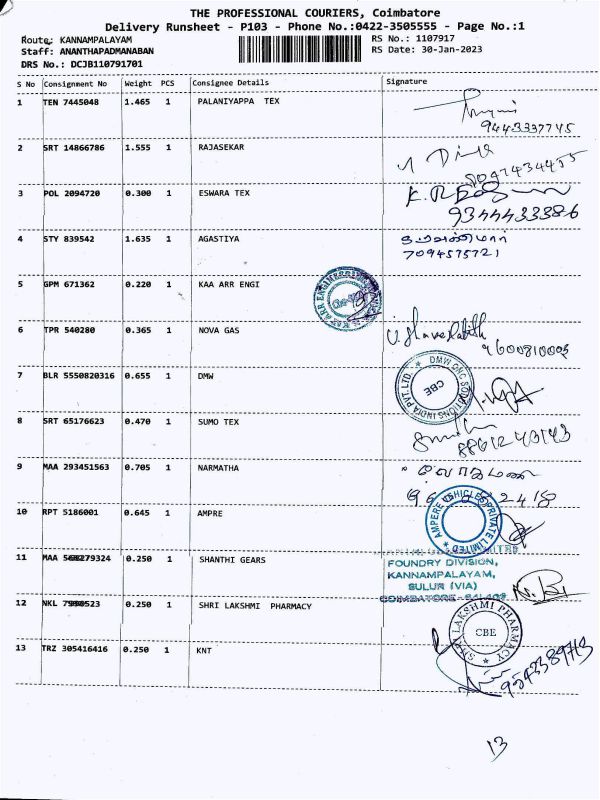 THE PROFESSIONAL COURIERS, Coimbatore
Delivery Runsheet - P103 - Phone No.:0422-3505555 - Page No.:1
Route: KANNAMPALAYAM RS No.: 1107917
Staff: ANANTHAPADMANABAN RS Date: 30-Jan-2023
DRS No.: DCJB110791701
S No Consignment No Weight PCS Consignee Details Signature
1 TEN 7445048 1.465 1 PALANIYAPPA TEX
9443337745
2 SRT 14866786 1.555 1 RAJASEKAR
3 POL 2094720 0.300 1 ESWARA TEX
9344433386
4 STY 839542 1.635 1 AGASTIYA
7094575721
5 GPM 671362 0.220 1 KAA ARR ENGI
6 TPR 540280 0.365 1 NOVA GAS
7 BLR 5550820316 0.655 1 DMW
DMW CNC SOLUTIONS INDIA PVT. LTD.
CBE
8 SRT 65176623 0.470 1 SUMO TEX
9 MAA 293451563 0.705 1 NARMATHA
10 RPT 5186001 0.645 1 AMPRE
AMPERE VEHICLES PRIVATE LIMITED
11 MAA 279324 0.250 1 SHANTHI GEARS
FOUNDRY DIVISION,
KANNAMPALAYAM,
SULUR (VIA)
COIMBATORE
12 NKL 0.250 1 SHRI LAKSHMI PHARMACY
LAKSHMI PHARMACY
CBE
13 TRZ 305416416 0.250 1 KNT
13